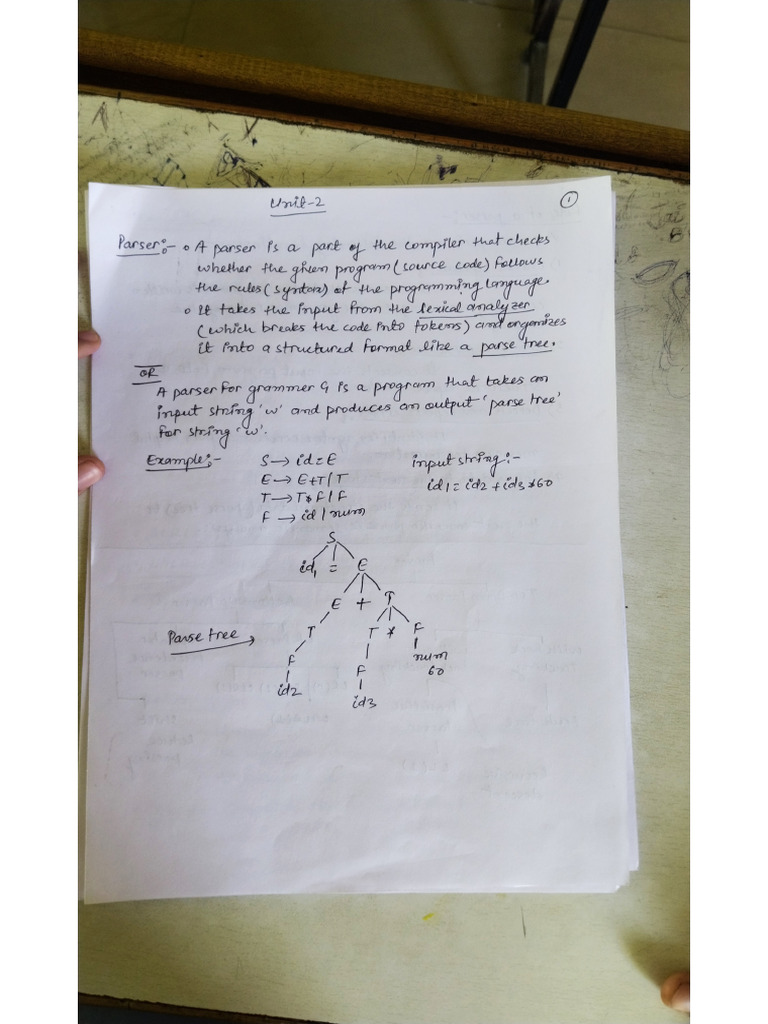 Unit-2
①
Parser:- o A parser is a part of the compiler that checks
whether the given program (source code) follows
the rules (syntax) of the programming language.
o It takes the input from the lexical analyzer
(which breaks the code into tokens) and organizes
it into a structured format like a parse tree.
OR
A parser for grammer G is a program that takes an
input string 'w' and produces an output 'parse tree'
for string 'w'.
Example:- S → id = E input string:-
E → E+T | T id1 = id2 + id3 * 60
T → T*F | F
F → id | num
S
id1 = E
E + T
Parse tree → T T * F
F F num
60
id2 id3